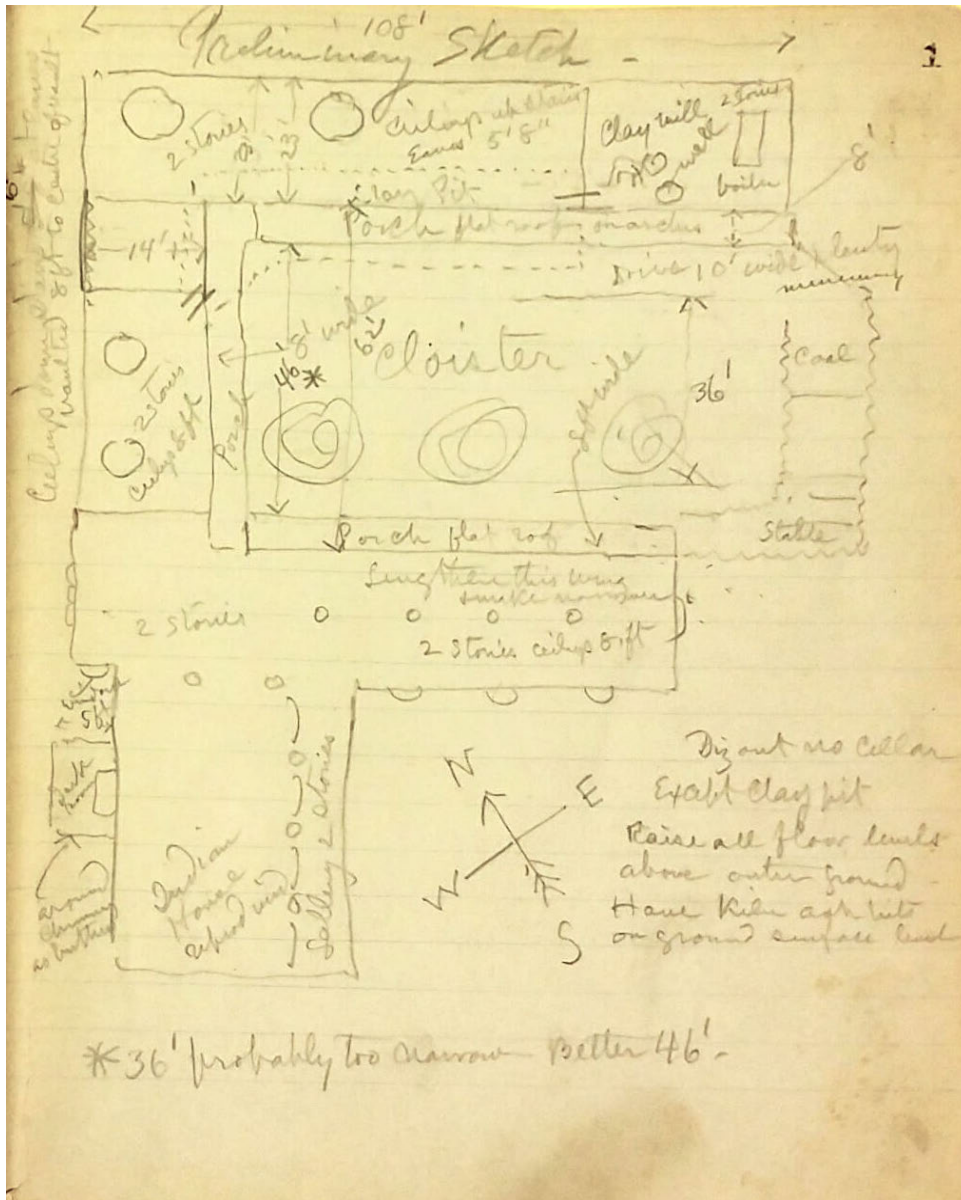 108'
Preliminary Sketch -
1
2 Stories
23'
Ceilings up stairs
Eaves 5' 8"
Clay mill
2 Stories
well
boiler
8'
Clay Pit
Porch flat roof on arches
14'
Drive 10' wide plenty
8' wide
62'
46'
*
Cloister
36'
Coal
2 Stories
Ceilings 8 ft
Porch
8 ft wide
Stable
Porch flat roof
Lengthen this wing
2 Stories
2 Stories ceilings 8 ft
Ceilings
vaulted 8 ft to centre of vault
Indian
House
reproduced
Gallery 2 Stories
around
chimney
as buttress
N
E
W
S
Dig out no Cellar
Except Clay pit
Raise all floor levels
above outer ground
Have Kiln ash pits
on ground surface level
* 36' probably too narrow Better 46' -